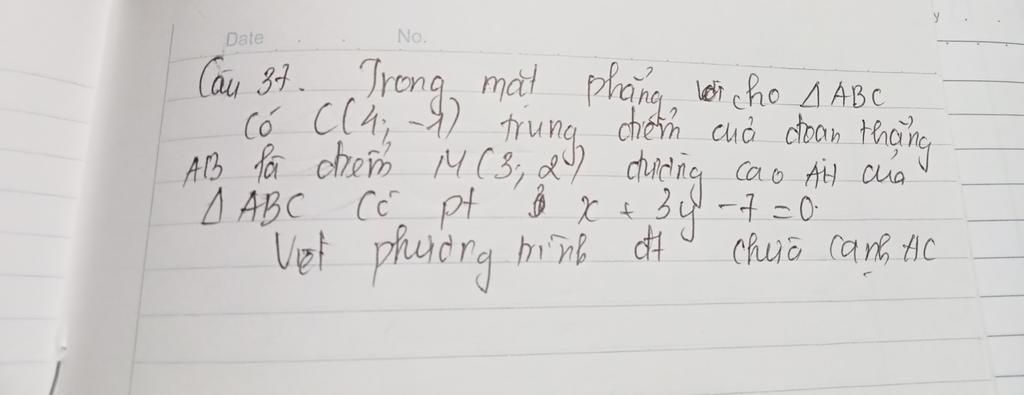 y
Date
No.
Câu 37. Trong mặt phẳng, cho Δ ABC
có C(4; -1) trung điểm của đoạn thẳng
AB là điểm M(3; 2) đường cao AH của
Δ ABC có pt x + 3y - 7 = 0.
Viết phương trình đt chứa cạnh AC